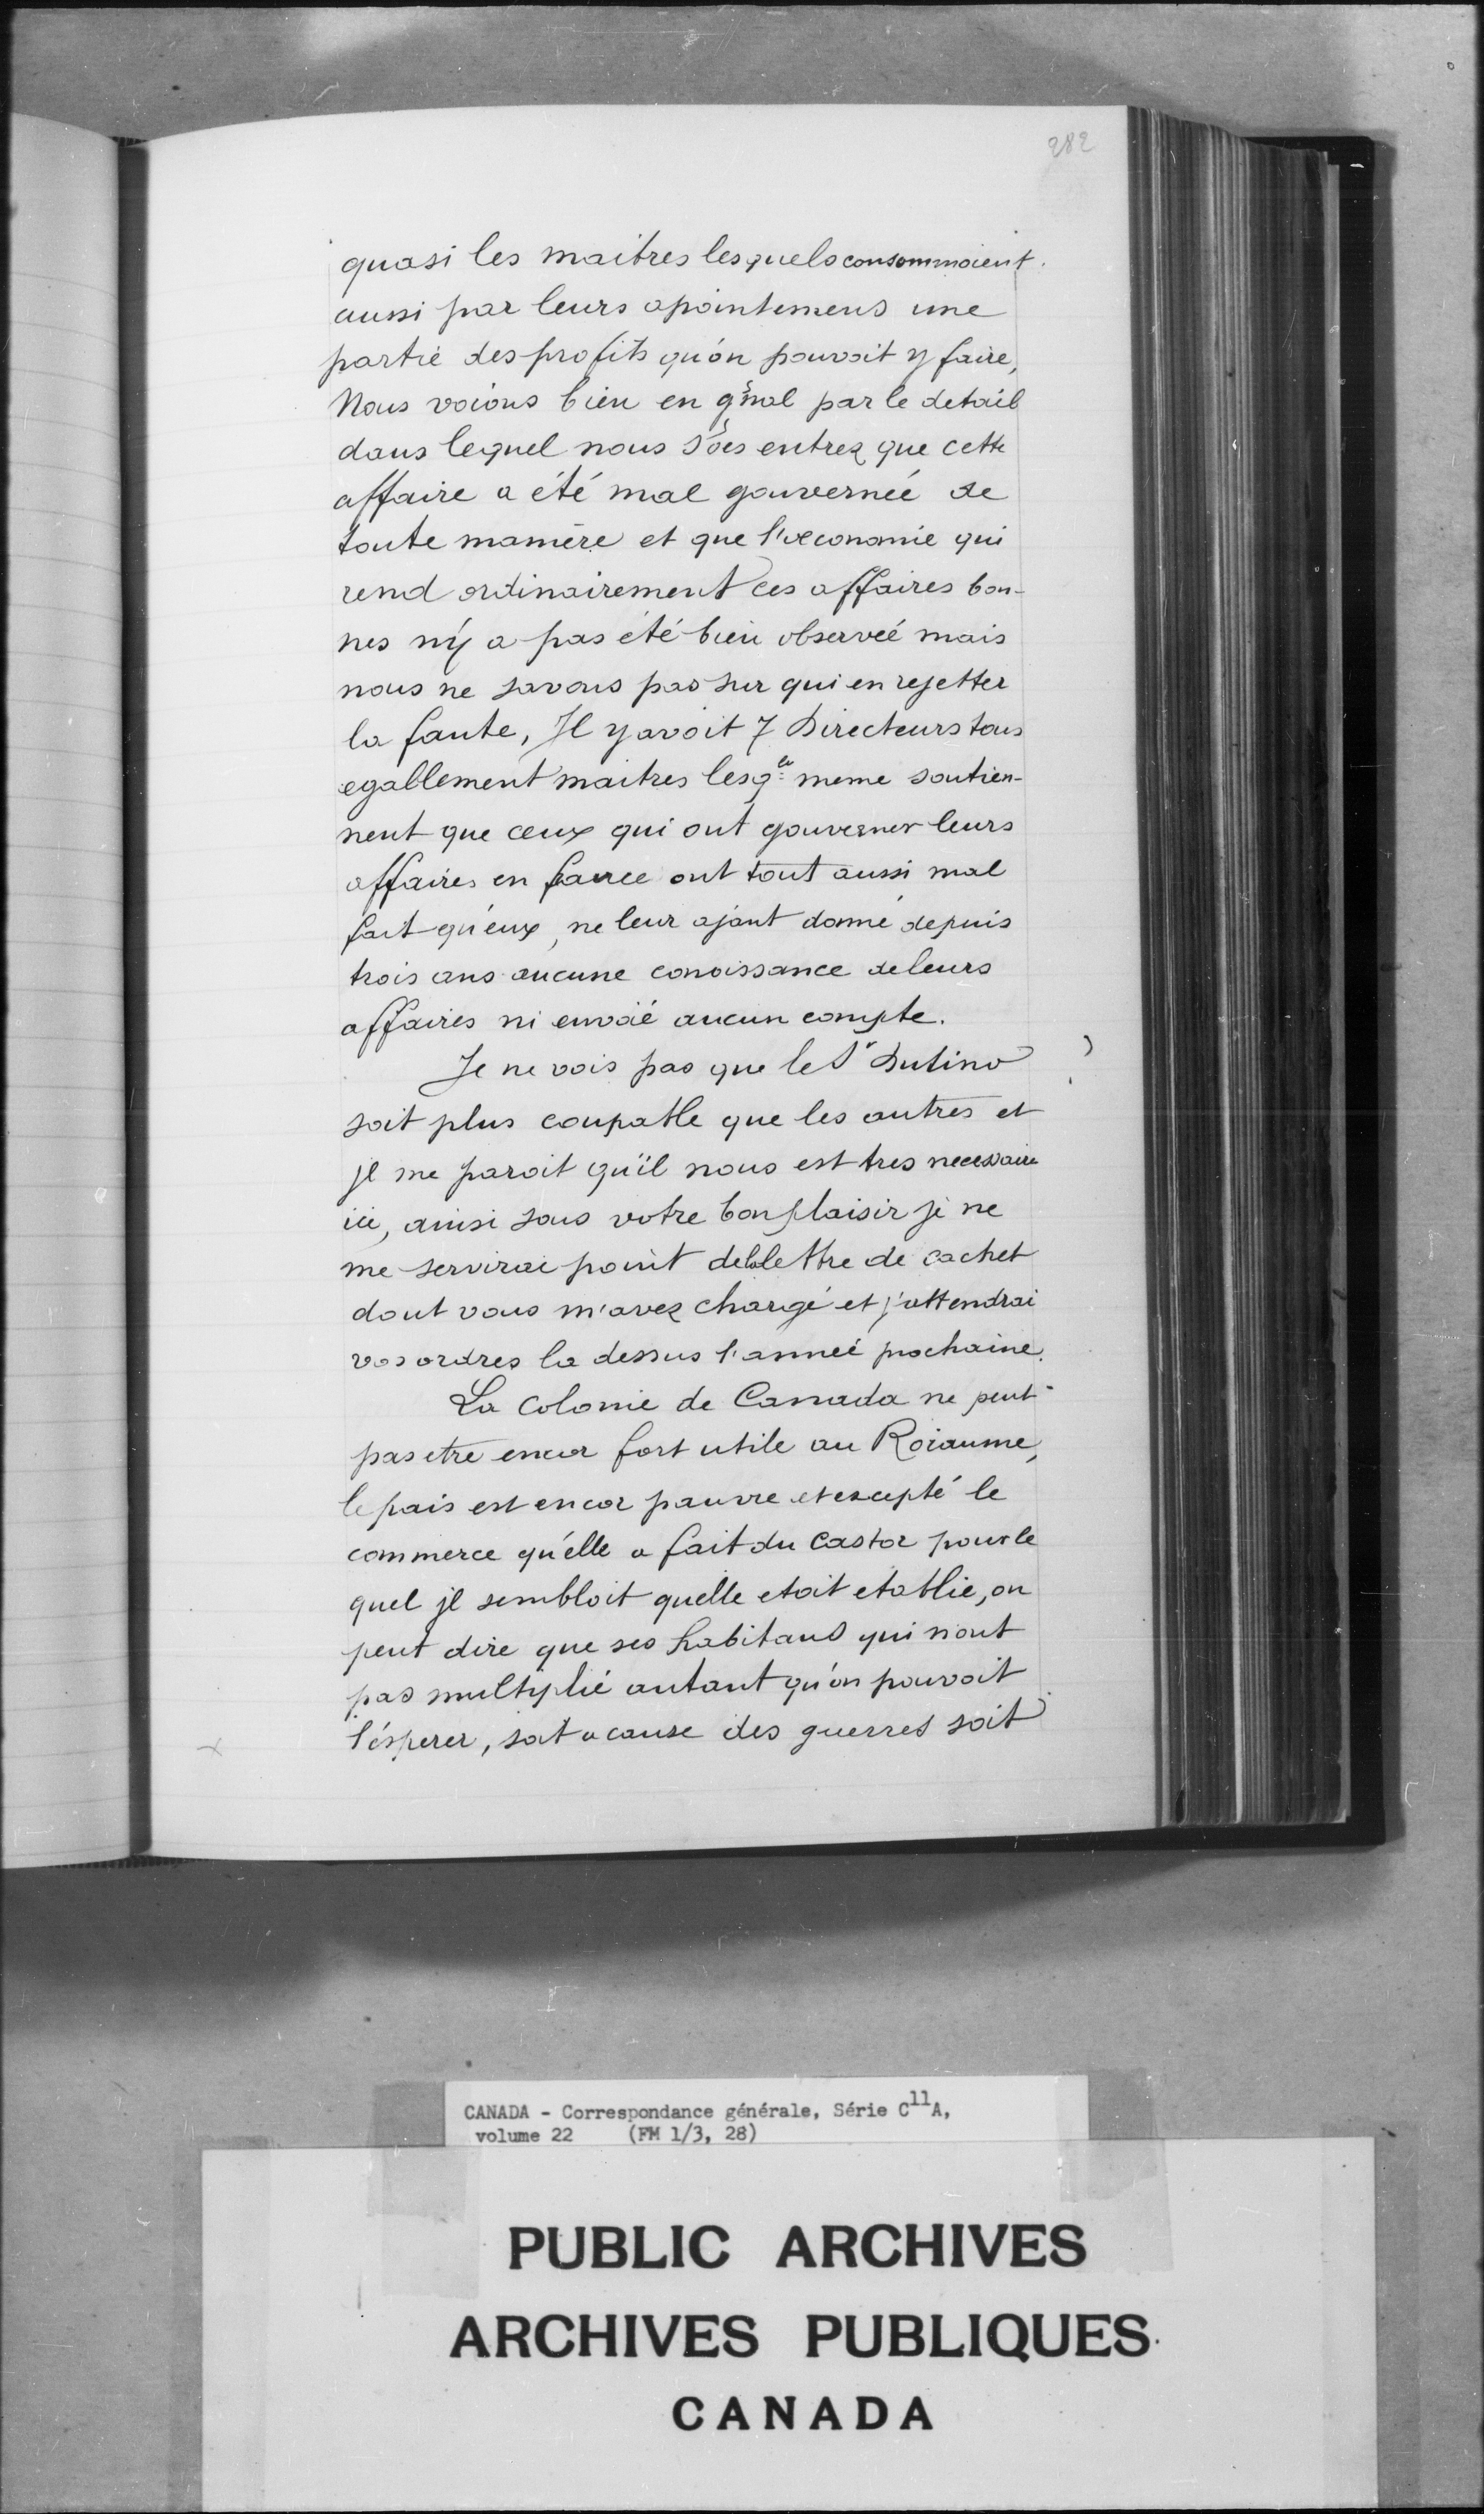 282
quasi les maitres lesquels consommoient
aussi par leurs apointemens une
partie des profits qu'on pouvoit y faire,
Nous voions bien en gñal par le detail
dans lequel nous sões entrez que cette
affaire a été mal gouvernée de
toute maniere et que l'œconomie qui
rend ordinairement ces affaires bon-
nes n'y a pas été bien observée mais
nous ne savons pas sur qui en rejetter
la faute, Il y avoit 7 Directeurs tous
egallement maitres lesq.ls meme soutien-
nent que ceux qui ont gouverner leurs
affaires en france ont tout aussi mal
fait qu'eux, ne leur ajant donné depuis
trois ans aucune conoissance de leurs
affaires ni envoié aucun compte.
Je ne vois pas que le Sr Dutino
soit plus coupable que les autres et
jl me paroit qu'il nous est tres necessaire
ici, ainsi sous votre bon plaisir je ne
me servirai point de la lettre de cachet
dont vous m'avez chargé et j'attendrai
vos ordres la dessus l'année prochaine.
La Colonie de Canada ne peut
pas etre encor fort utile au Roiaume,
le pais est encor pauvre et excepté le
commerce qu'elle a fait du Castor pour le
quel jl sembloit quelle etoit etablie, on
peut dire que ses habitans qui n'ont
pas multiplié autant qu'on pouvoit
l'ésperer, soit a cause des guerres soit
CANADA - Correspondance générale, Série C11A,
volume 22 (FM 1/3, 28)
PUBLIC ARCHIVES
ARCHIVES PUBLIQUES
CANADA